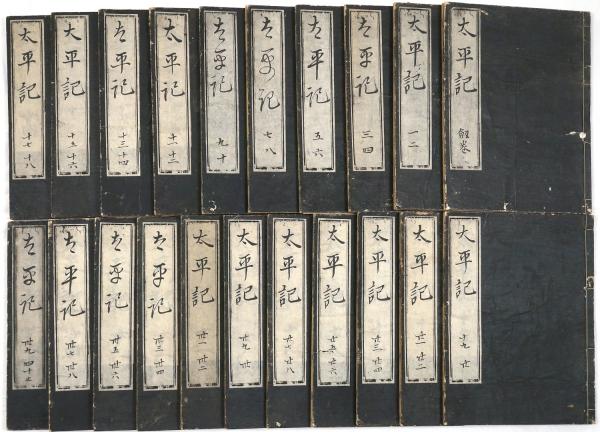 太平記 劔巻
太平記 一二
太平記 三四
太平記 五六
太平記 七八
太平記 九十
太平記 十一 十二
太平記 十三 十四
太平記 十五 十六
太平記 十七 十八
太平記 十九 廿
太平記 廿一 廿二
太平記 廿三 廿四
太平記 廿五 廿六
太平記 廿七 廿八
太平記 廿九 卅
太平記 卅一 卅二
太平記 卅三 卅四
太平記 卅五 卅六
太平記 卅七 卅八
太平記 卅九 四十